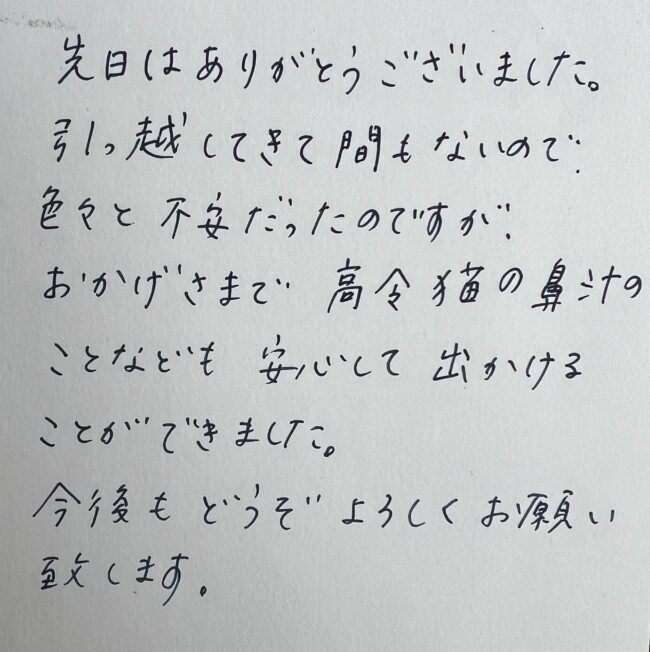 先日はありがとうございました。
引っ越してきて間もないので、
色々と不安だったのですが、
おかげさまで高令猫の鼻汁の
ことなども安心して出かける
ことができました。
今後もどうぞよろしくお願い
致します。